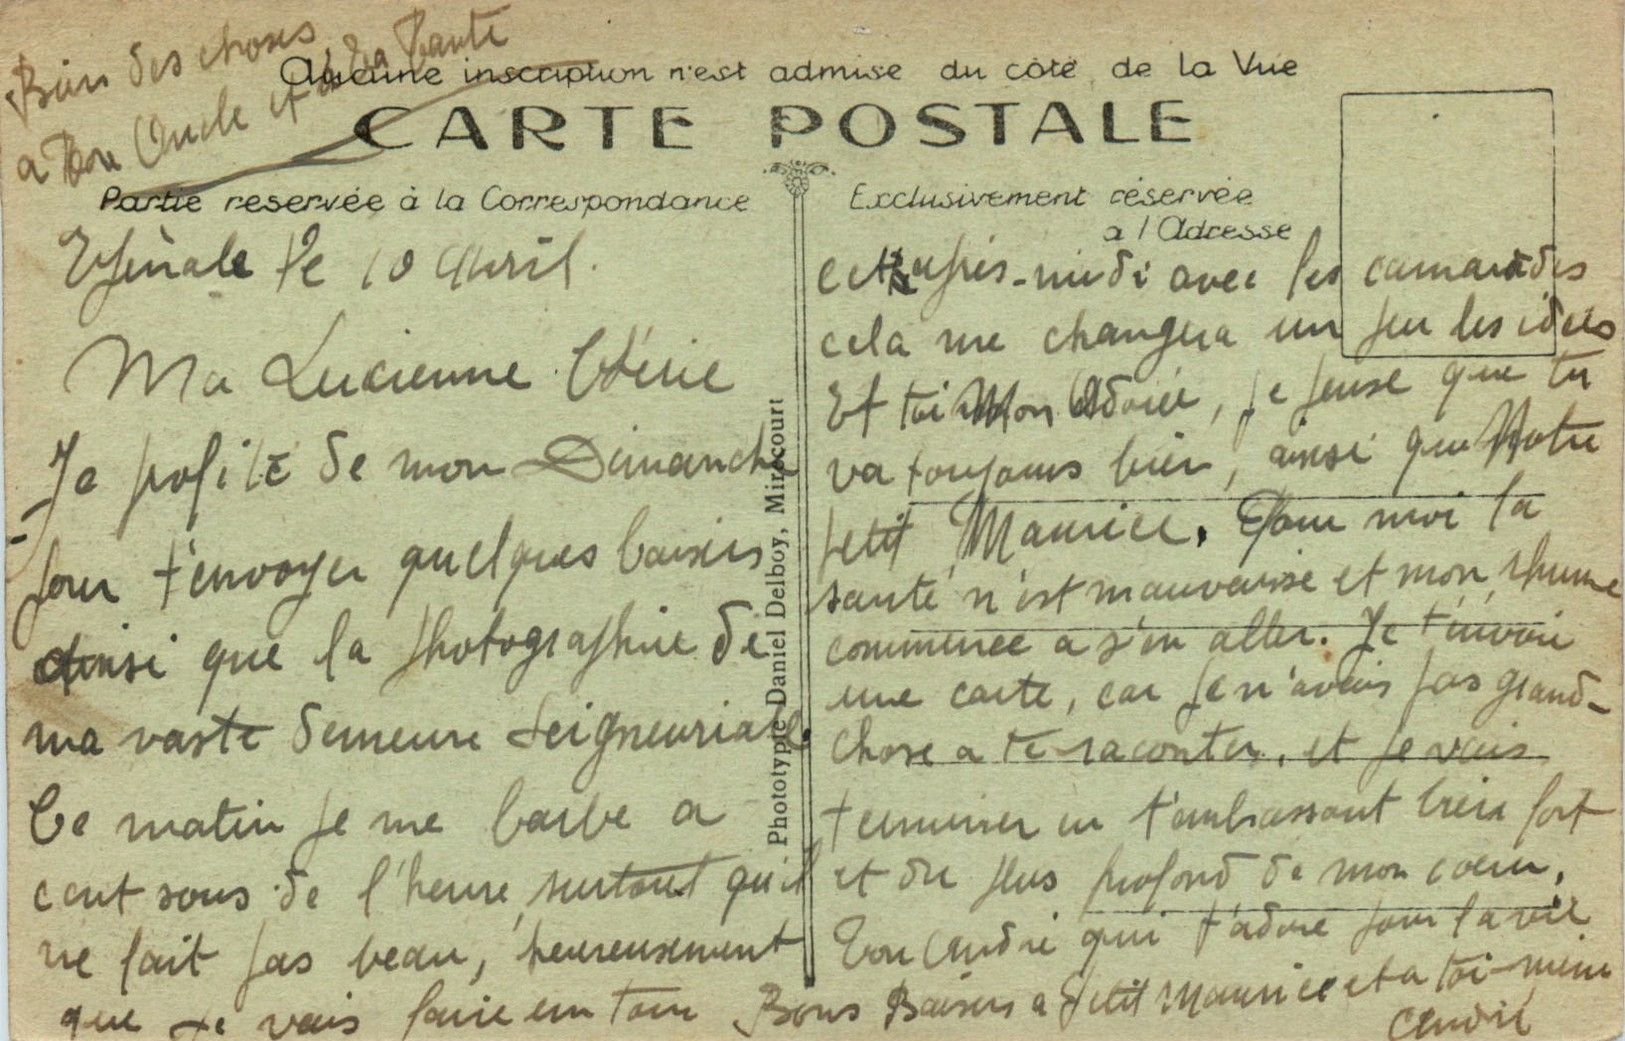 Bien des choses
a Ton Oncle et à la Tante
Aucune inscription n'est admise du côté de la Vue
CARTE POSTALE
Partie reservée à la Correspondance
Exclusivement réservée
a l'Adresse
Epinale le 10 Avril.
Ma Lucienne Chérie
Je profite de mon Dimanche
pour t'envoyer quelques baisers
ainsi que la photographie de
ma vaste demeure Seigneuriale
Ce matin je me barbe a
cent sous de l'heure, surtout qu'il
ne fait pas beau, heureusement
que je vais faire un tour
Phototypie Daniel Delboy, Mirecourt
cet après-midi avec les camarades
cela me changera un peu les idées
Et toi Mon Adorée, je pense que tu
va toujours bien, ainsi que Notre
petit Maurice. Pour moi la
santé n'est mauvaise et mon rhume
commence a s'en aller. Je t'envoie
une carte, car je n'avais pas grand-
chose a te raconter, et je vais
terminer en t'embrassant bien fort
et du plus profond de mon coeur.
Ton André qui t'adore pour la vie
Bons Baisers a petit Maurice et a toi-même
André